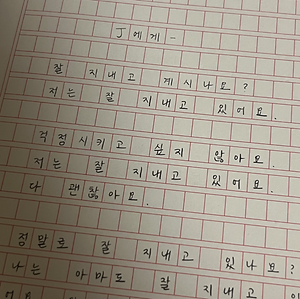 J에게-
잘 지내고 계시나요?
저는 잘 지내고 있어요.
걱정시키고 싶지 않아요.
저는 잘 지내고 있어요.
다 괜찮아요.
정말로 잘 지내고 있나요?
나는 아마도 잘 지내고